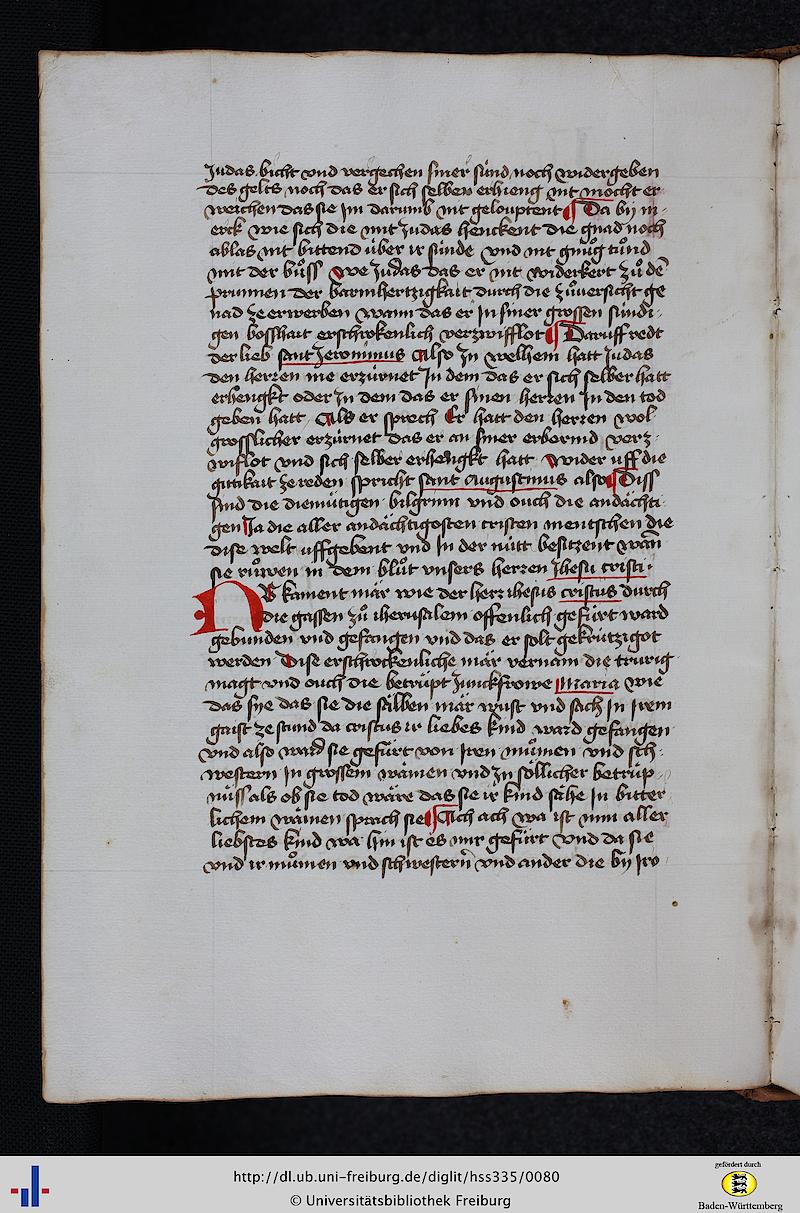 Judas bicht vnd vergechen siner sünd noch widergeben
des gelts noch das er sich selben erhieng nit mocht er
weichen das sie im darumb nit gelouptent ¶ Da bÿ m-
erck wie sich die mit Judas henckent die gnad noch
ablas nit bittend über ir sünde vnd nit gnůg tůnd
mit der bůss we Judas das er nit widerkert zů dē
prunnen der barmhertzigkait durch die zůuersicht ge
nad ze erwerben wann das er in siner grossen sündi-
gen bosshait erschrokenlich verzwifflot ¶ Daruff redt
der lieb sant Jeronimus Also Jn welhem hatt Judas
den herren me erzürnet Jn dem das er sich selber hatt
erhengkt oder Jn dem das er sinen herren Jn den tod
geben hatt Als er sprech Er hatt den herren wol
grosslicher erzürnet das er an siner erbermd verz-
wiflot vnd sich selber erhengkt hatt wider uff die
gütikait ze reden spricht sant Augustinus also ¶ Diss
sind die diemütigen bilgrinn vnd ouch die andächti
gen Ja die aller andächtigosten cristen mentschen die
dise welt uffgebent vnd Jn der nütt besitzent wañ
sie růwen in dem blůt vnsers herzen Jhesu cristi.
NV kament mär wie der herr ihesus cristus durch
die gassen zů iherusalem offenlich gefürt ward
gebunden vnd gefangen vnd das er solt gekrützigot
werden Dise erschrockenliche mär vernam die trurig
magt vnd ouch die betrüpt Junckfrowe Maria wie
das sye das sie die sälben mär wust vnd sach Jn Jrem
gaist ze stund da cristus ir liebes kind ward gefangen
vnd also ward sie gefürt von Jren můmen vnd sch-
western Jn grossem wainen vnd Jn söllicher betrüp-
nüss als ob sie tod wäre das sie ir kind sähe Jn bitter
lichem wainen sprach sie ¶ Ach ach wa ist min aller
liebstes kind wa hin ist es mir gefürt Vnd da sie
vnd ir můmen vnd schwestern vnd ander die bÿ Jro
http://dl.ub.uni-freiburg.de/diglit/hss335/0080
© Universitätsbibliothek Freiburg
gefördert durch
Baden-Württemberg